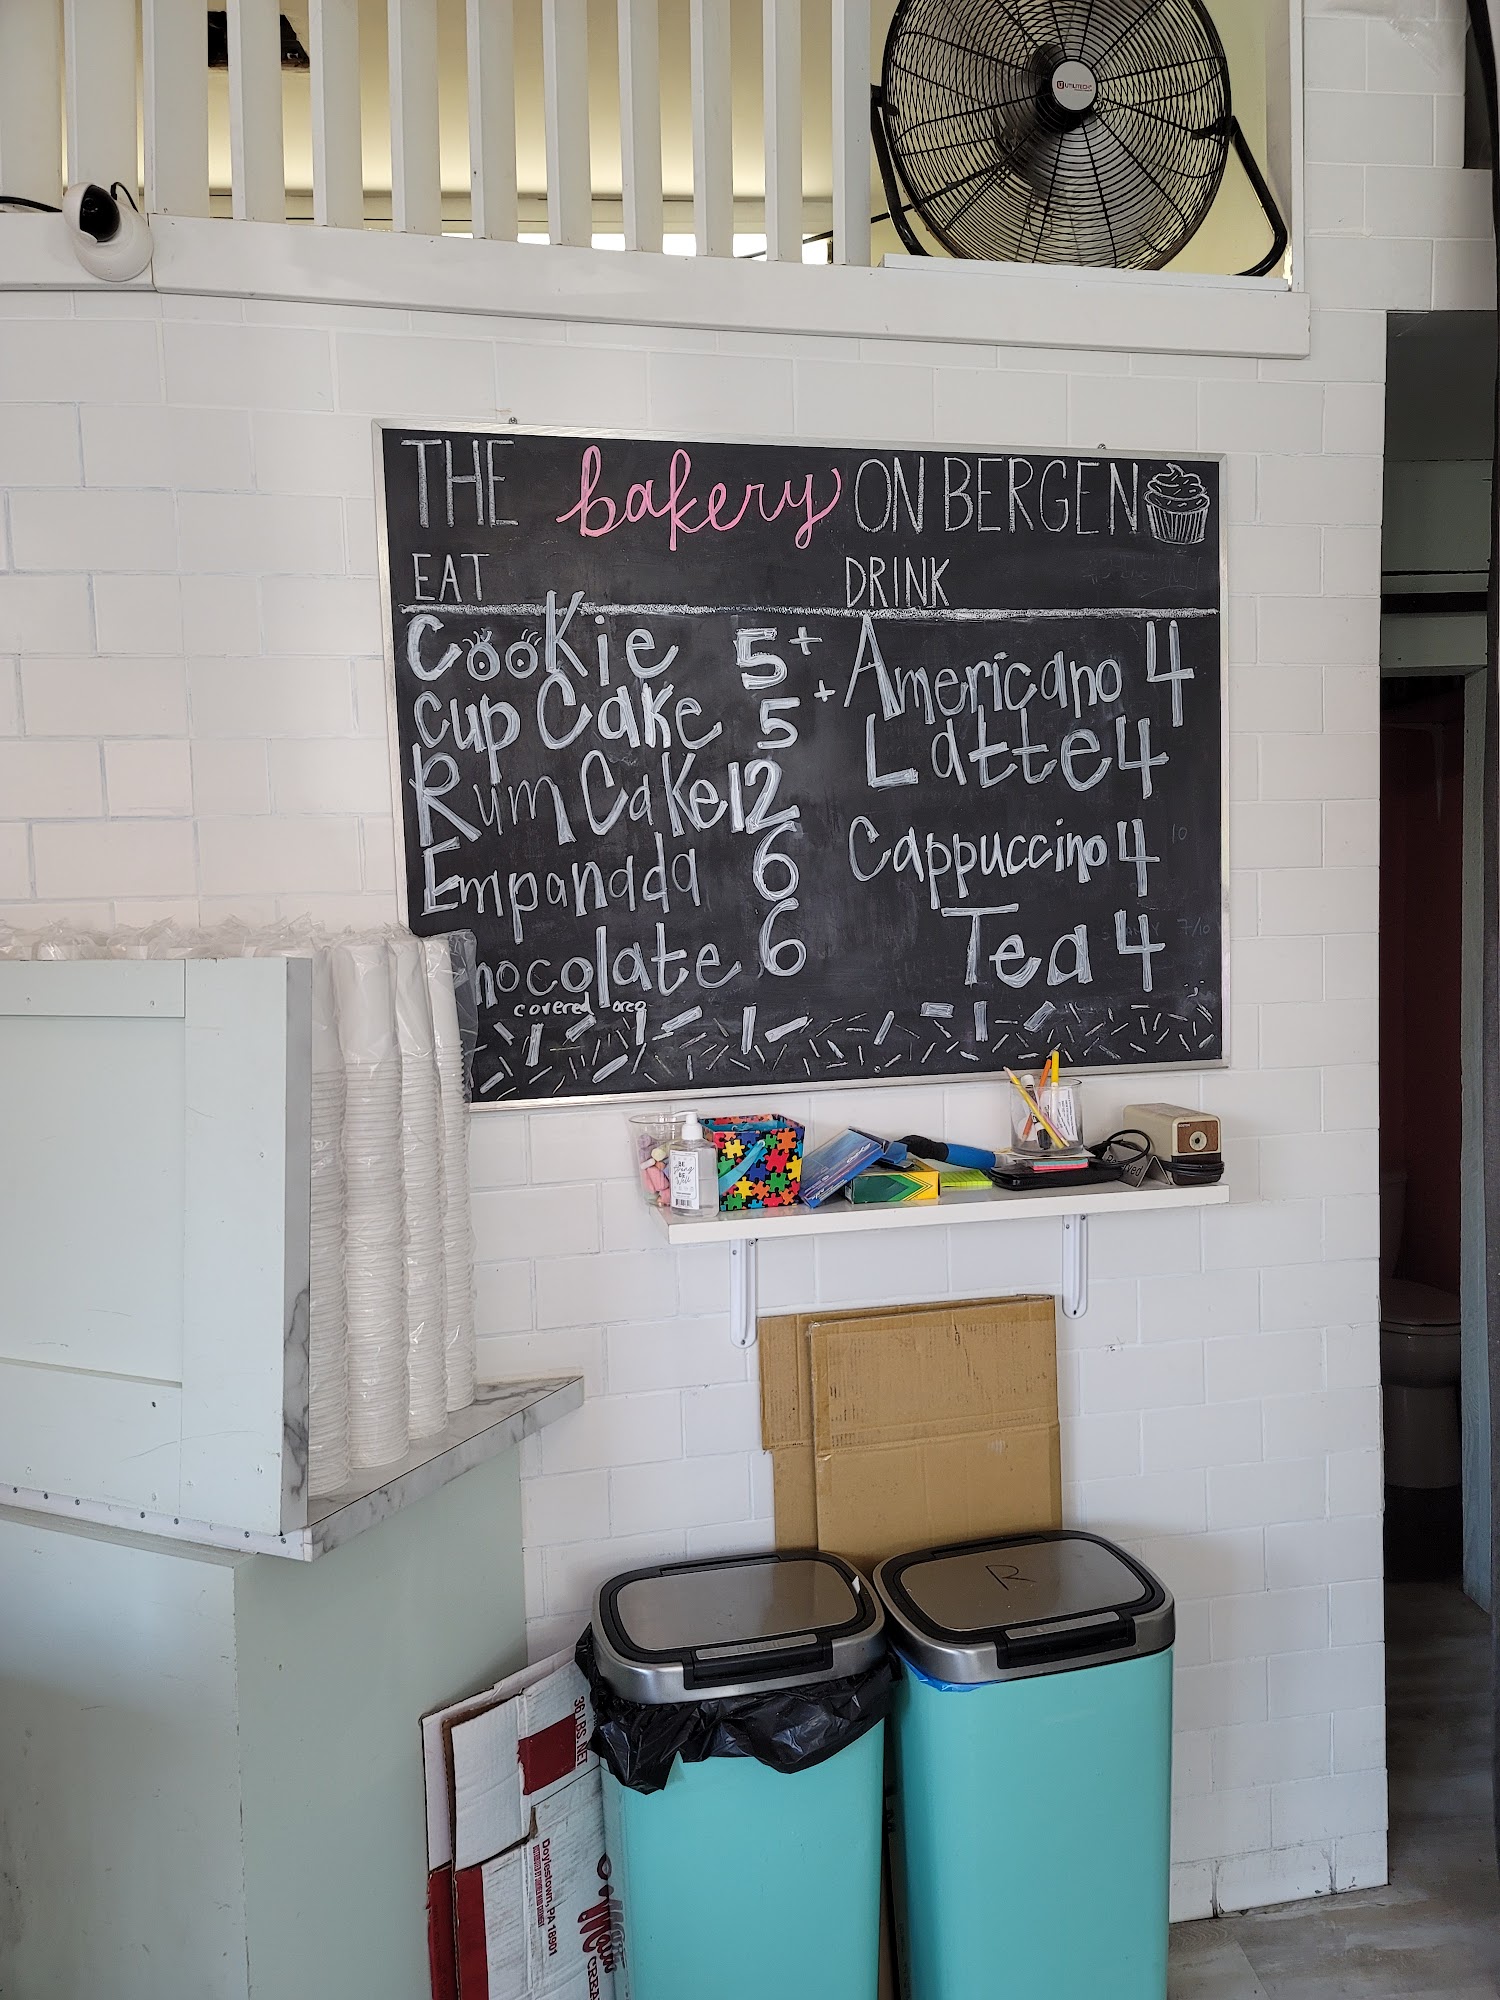 UTILITECH
THE bakery ON BERGEN
EAT
DRINK
CooKie 5+
cupCake 5+
Rum CaKe 12
Empanada 6
hocolate 6
covered oreo
Americano 4
Latte 4
Cappuccino 4
Tea 4
7/10
10
BE
strong
BE
R
36 LBS. NET
Doylestown, PA 18901